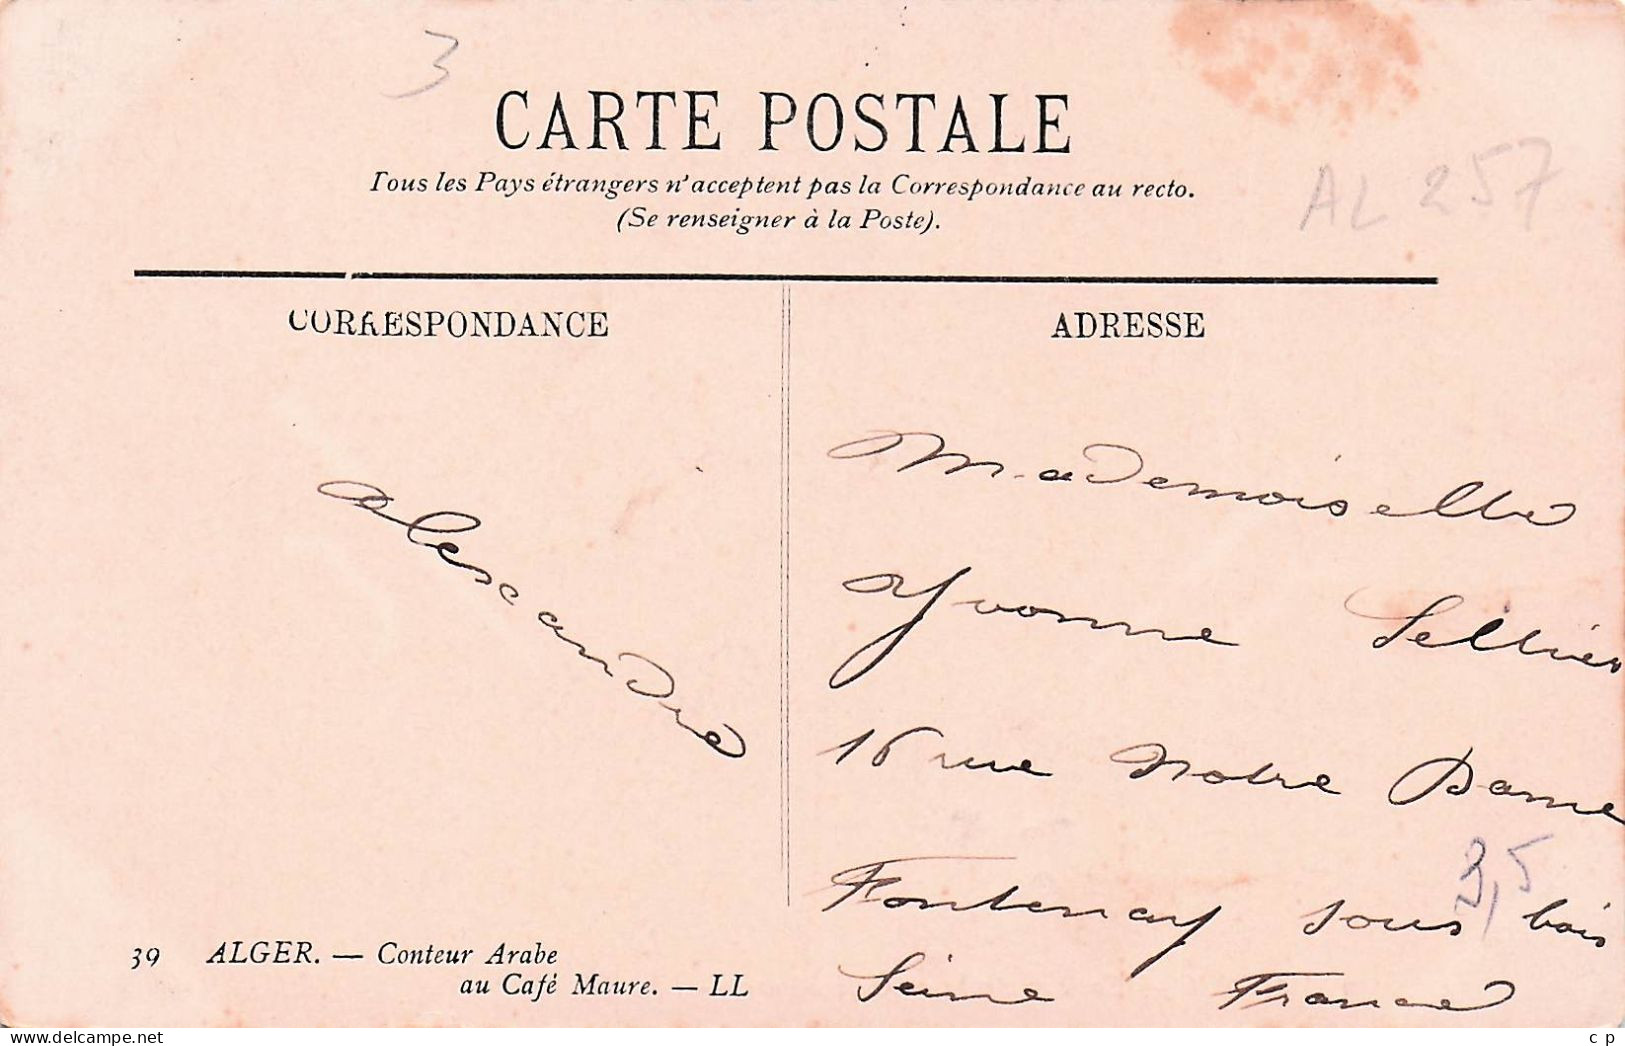 3
CARTE POSTALE
Tous les Pays étrangers n'acceptent pas la Correspondance au recto.
(Se renseigner à la Poste).
AL 257
CORRESPONDANCE
ADRESSE
Alexandre
Mademoiselle
Yvonne Sellier
16 rue Notre Dame
3,5
Fontenay sous bois
Seine France
39 ALGER. — Conteur Arabe
au Café Maure. — LL
delcampe.net
c p